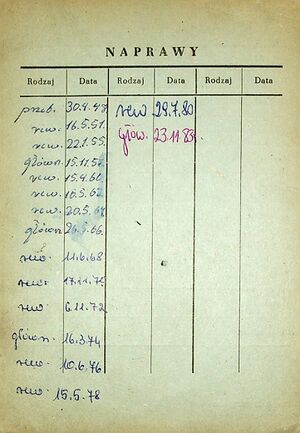 NAPRAWY
Rodzaj Data Rodzaj Data Rodzaj Data
przeb. 30.4.48 rew 29.7.80
rew. 16.5.51. głów. 23.11.83.
rew. 22.1.55
główn. 15.11.57
rew. 15.4.60
rew. 16.5.62
rew. 20.5.64
główn 26.5.66
rew 11.6.68
rew. 17.11.70
rew 6.11.72
główn. 16.3.74
rew. 10.6.76
rew 15.5.78